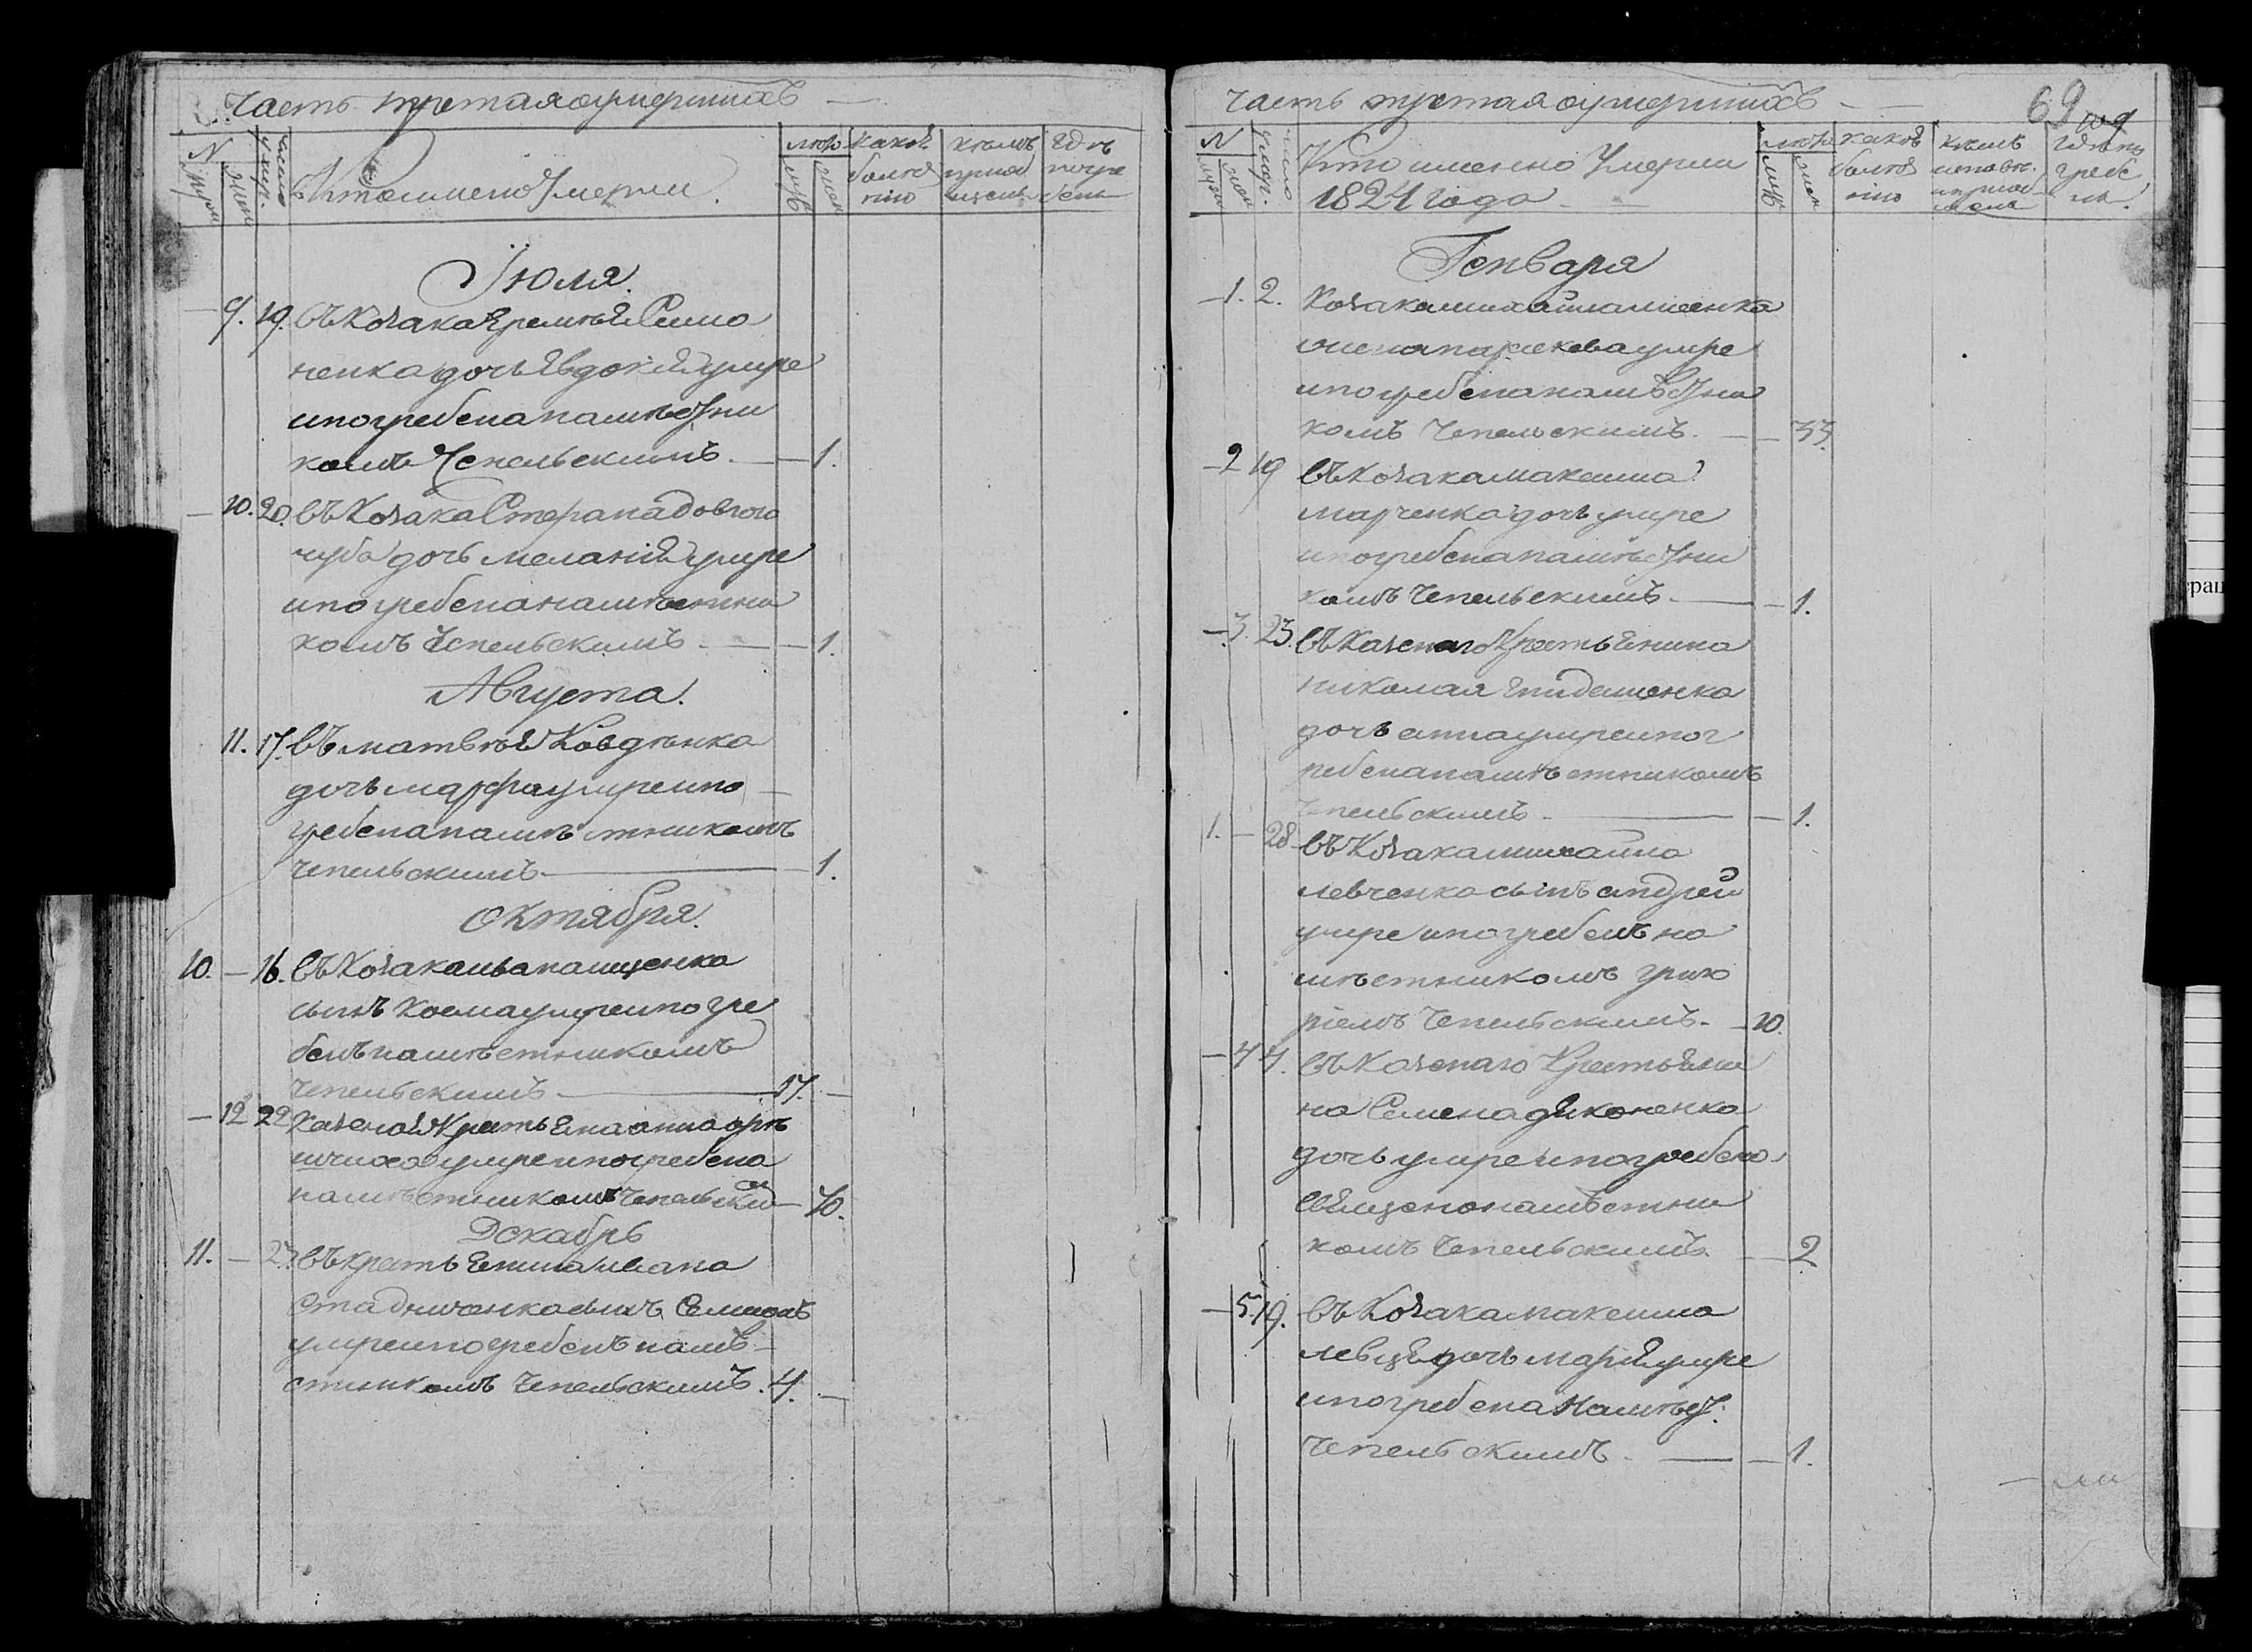 Часть третая оумершихъ
N
мужи
жен
число умер.
Кто именно Умерли.
лета
муж
жен
какою болез нію
кѣмъ приоб щены
Где погре бены
Іюля.
9. 19. въ Козака Еремѣя Симо
ненка дочь Явдокія умре
и погребена намѣстни
комъ Чепельскимъ. — 1.
10. 20. въ Козака Стефана довгого
чуба дочь меланія умре
и погребена намѣстни
комъ Чепельскимъ. — 1.
Августа.
11. 17. въ матвѣя Ковдѣнка
дочь марфа умре и по
гребена намѣстникомъ
чепельскимъ — 1.
Октября.
10. — 16. въ Козака ивана ищенка
сынъ Косма умре и погре
бенъ намѣстникомъ
чепельскимъ — 17. —
— 12 22 Казеная Крестьяна анна
умре и погребена
намѣстникомъ Чепельским — 70.
Декабрь
11. — 23 въ крестьянина ивана
Стадниченка сынъ Симионъ
умре и погребенъ намѣ
стникомъ Чепельскимъ. 4. —
Часть третая оумершихъ
69
N
мужи
жен
число
умер.
Кто именно Умерли
1824 года
лета
муж
жен
какою болез нію
кѣмъ исповѣ. и приоб щены
Где по гребе ны.
Генваря
— 1. 2. Козака михаила
жена параскева умре
и погребена намѣстни
комъ Чепельскимъ. — 33.
— 2 19 въ Козака максима
марченка дочь умре
и погребена намѣстни
комъ Чепельскимъ. — 1.
— 3. 23. въ Казенаго Крестьянина
николая
дочь анна умре и пог
ребена намѣстникомъ
Чепельскимъ — 1.
1. — 28 въ Козака михаила
левченка сынъ андрей
умре и погребенъ на
мѣстникомъ григо
ріемъ Чепельскимъ. — 10.
— 4 4. въ Казенаго Крестьяни
на Семена дяконенка
дочь умре и погребено
священонамѣстни
комъ Чепельскимъ — 2.
— 5. 19. въ Козака максима
левця дочь марія умре
и погребена намѣст.
Чепельскимъ. — 1.